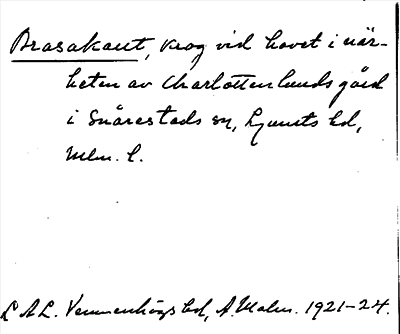 Brasakaut, krog vid havet i när-
heten av Charlottenlunds gård
i Snårestads sn, Ljunits hd,
Mlm. l.
L A L. Vemmenhögs hd, A. Malm. 1921-24.